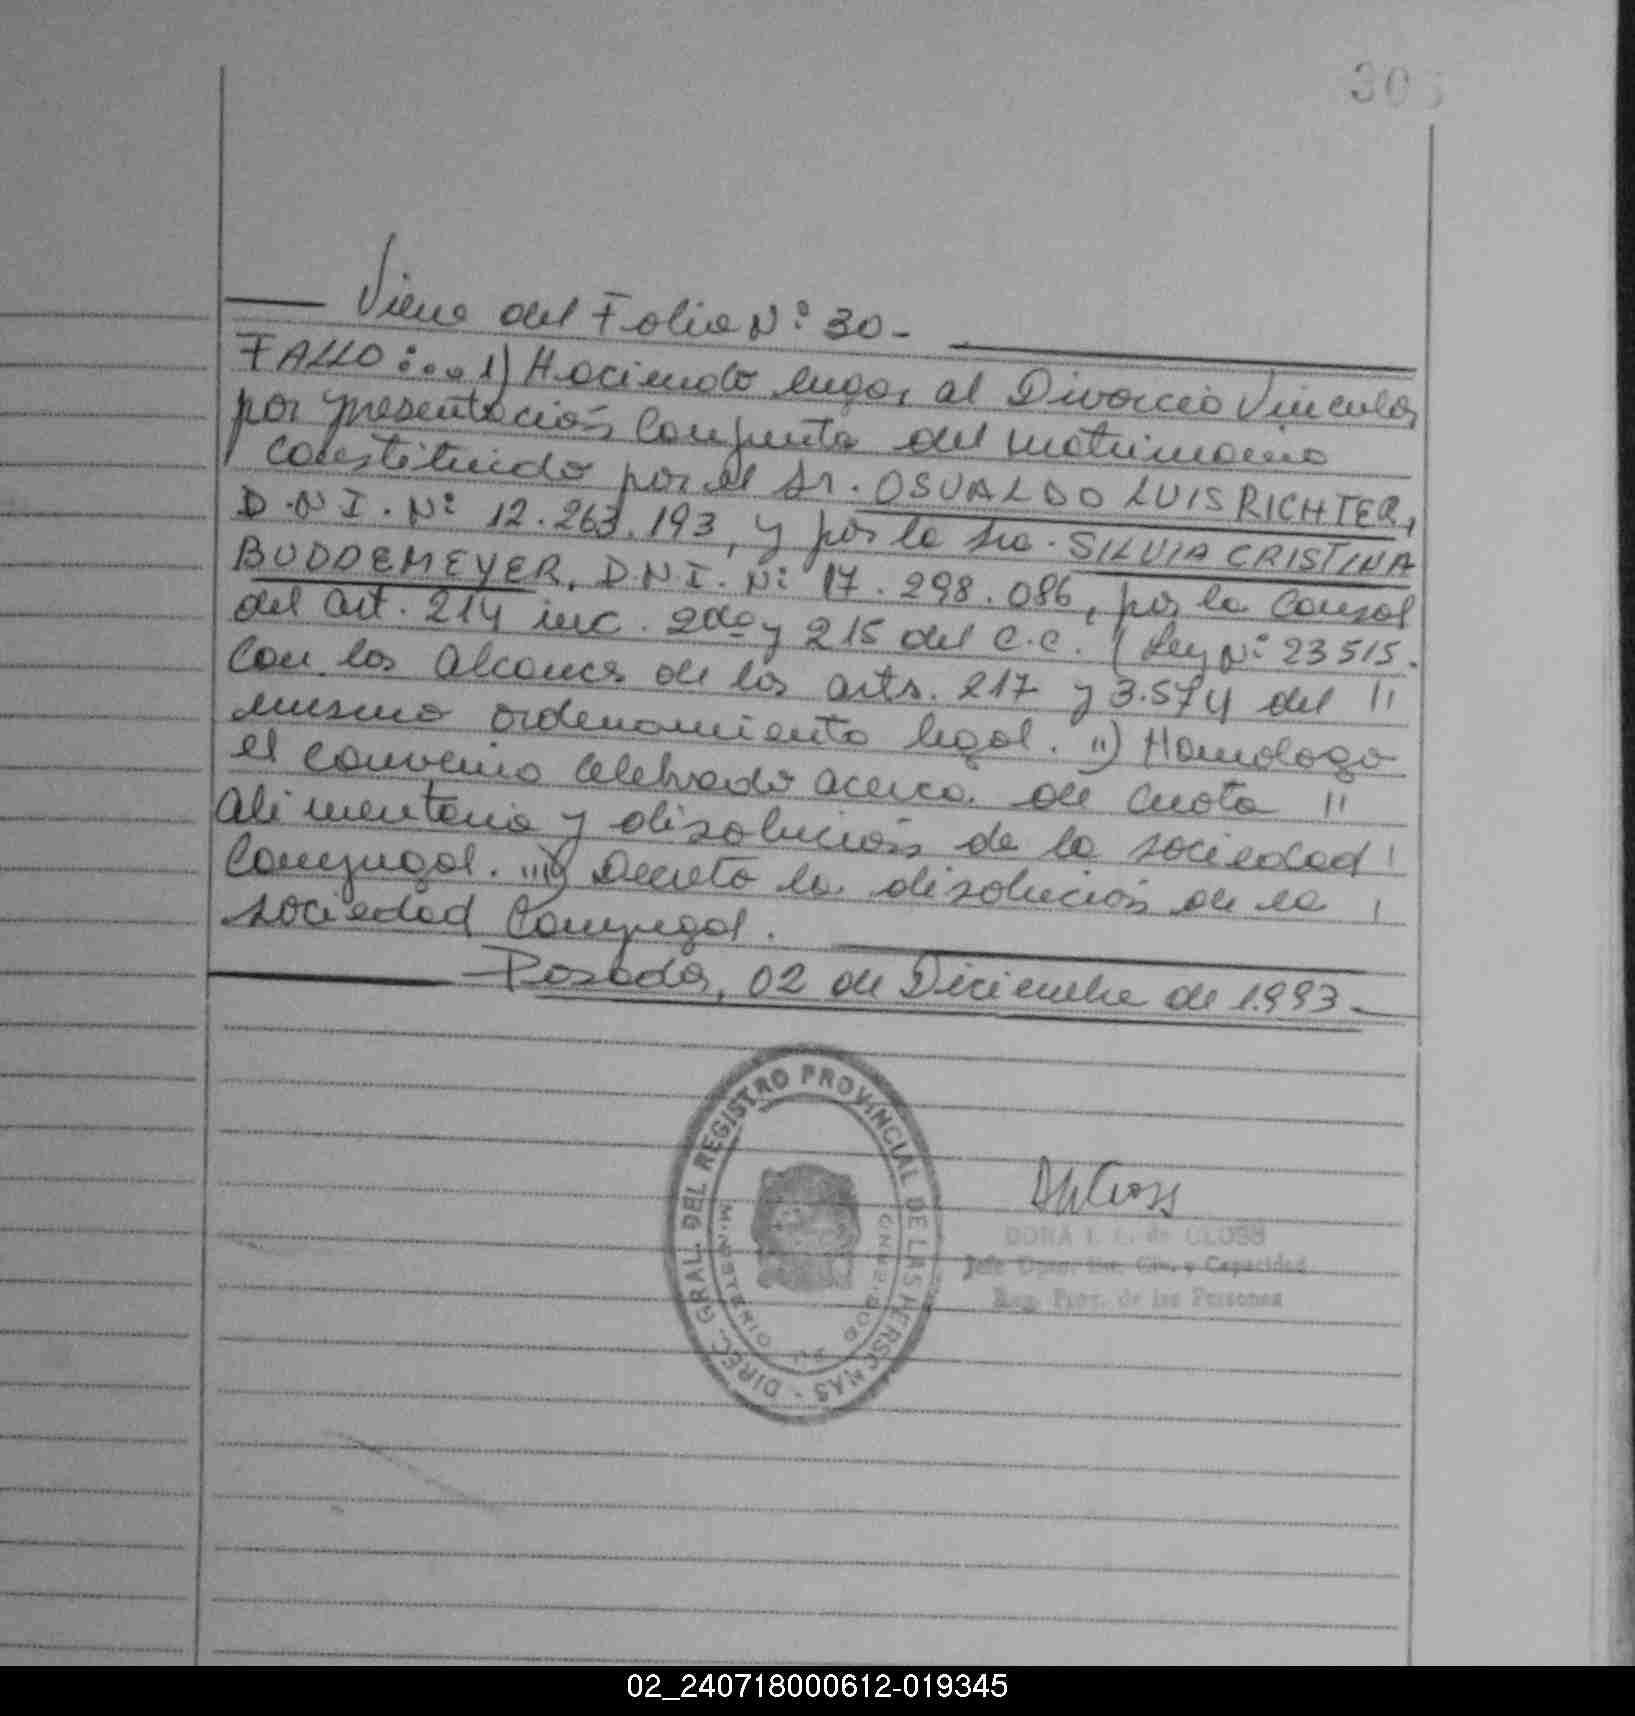 30
Viene del Folio Nº 30-
FALLO:... 1) Haciendo lugar al Divorcio Vincular
por presentación Conjunta del matrimonio
Constituido por el Sr. OSVALDO LUIS RICHTER,
D.N.I. Nº 12.263.193, y por la Sra. SILVIA CRISTINA
BUDDEMEYER, D.N.I. Nº 17.298.086, por la Causal
del art. 214 inc. 2do y 215 del C.C. (Ley Nº 23515.
Con los alcances de los arts. 217 y 3.574 del //
mismo ordenamiento legal. 11) Homologo
el convenio celebrado acerca de Cuota //
alimentaria y disolución de la sociedad /
Conyugal. 111) Decreto la disolución de la /
sociedad Conyugal.
Posadas, 02 de Diciembre de 1.993-
DIREC. GRAL. DEL REGISTRO PROVINCIAL DE LAS PERSONAS -
MINISTERIO DE GOBIERNO
DORA de GLOSS
Jefe Dpto. Est. Civ. y Capacidad
Reg. Prov. de las Personas
02_240718000612-019345